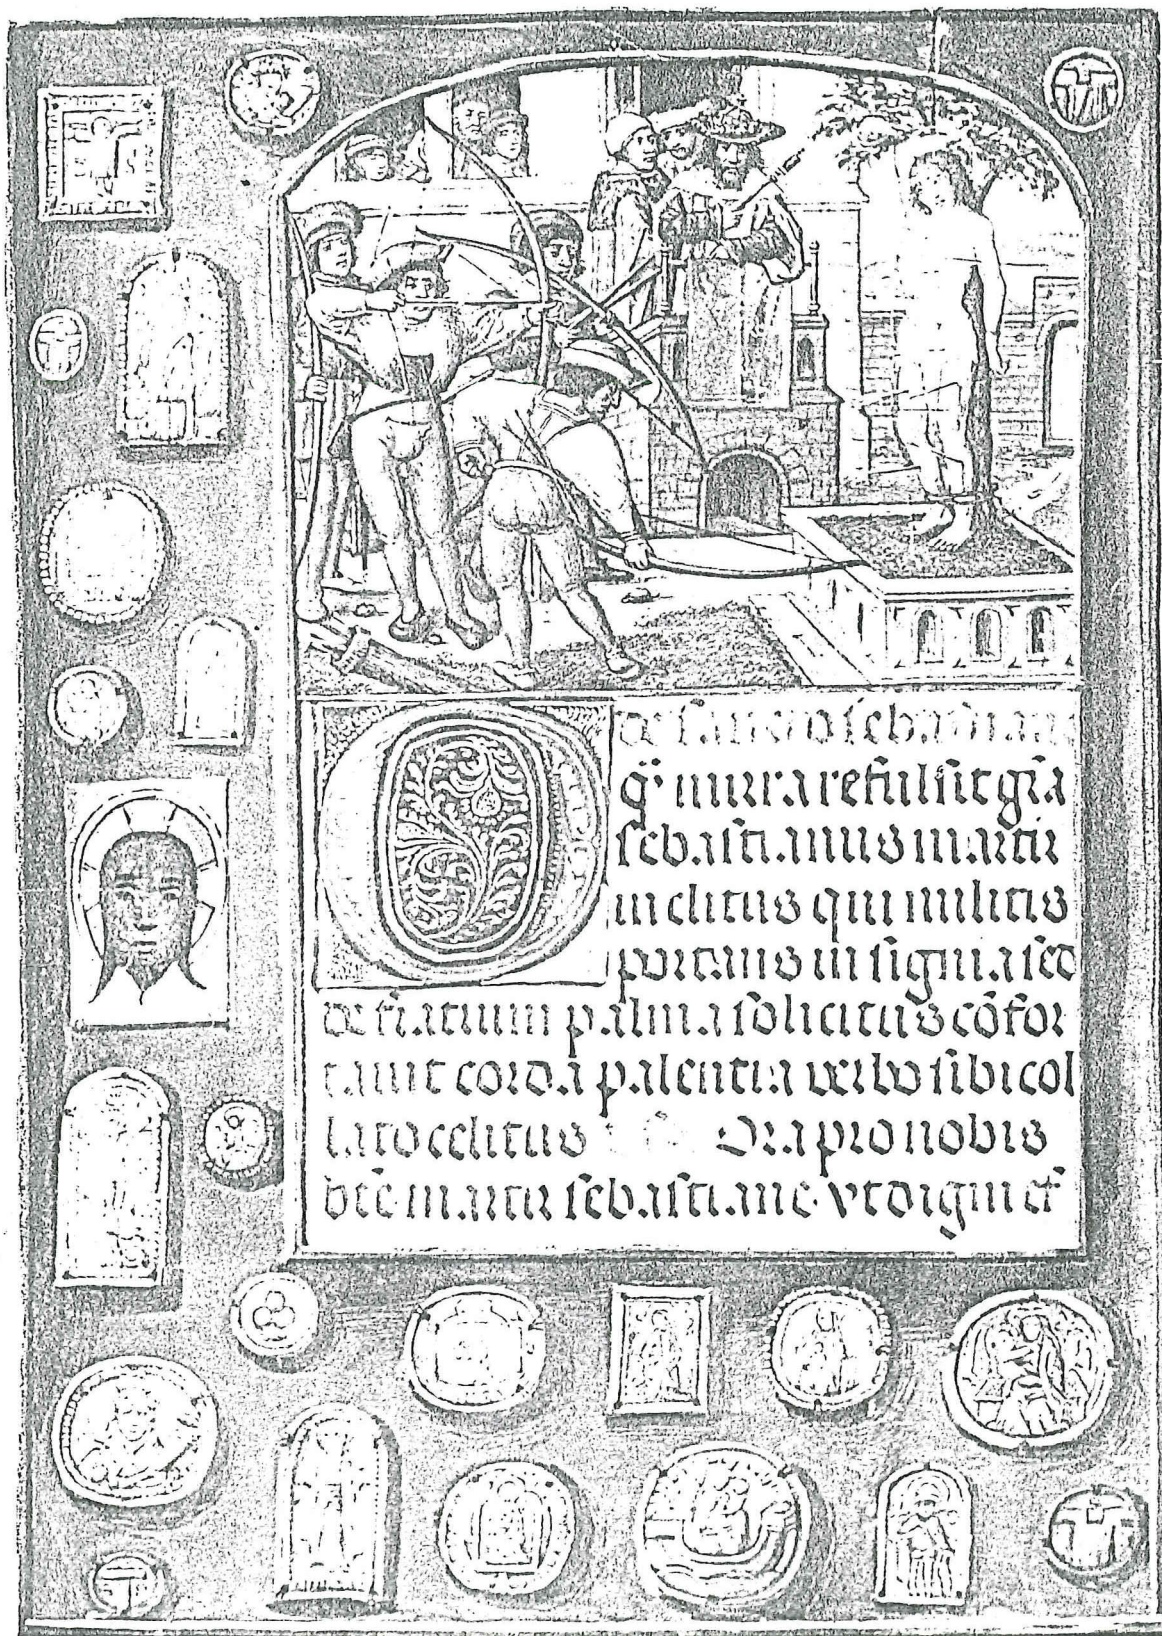 de sancto sebastiano
O q̄ mira refulsit grā
sebastianus martir
inclitus qui militis
portans insignia sed
de fratrum palma solicitus cōfor
tauit corda palentia verbo sibi col
lato celitus Ora pro nobis
bte martir sebastiane. vt digni ef